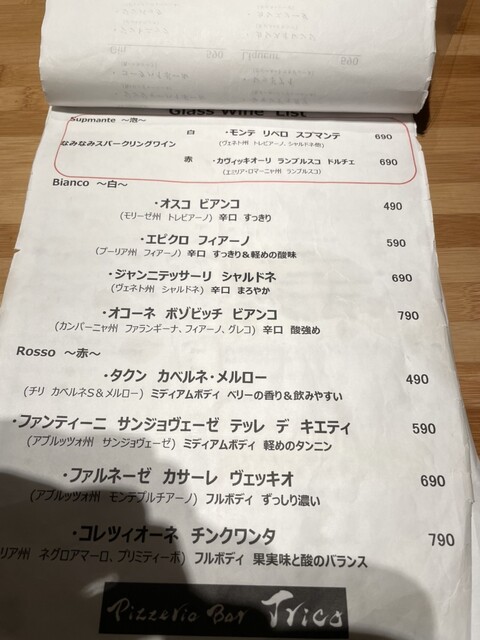 Gin 590 Liqueur 590
Glass Wine List
Supmante ～泡～
白 ・モンテ リベロ スプマンテ 690
なみなみスパークリングワイン (ヴェネト州 トレビアーノ、シャルドネ他)
赤 ・カヴィッキオーリ ランブルスコ ドルチェ 690
(エミリア・ロマーニャ州 ランブルスコ)
Bianco ～白～
・オスコ ビアンコ 490
(モリーゼ州 トレビアーノ) 辛口 すっきり
・エピクロ フィアーノ 590
(プーリア州 フィアーノ) 辛口 すっきり＆軽めの酸味
・ジャンニテッサーリ シャルドネ 690
(ヴェネト州 シャルドネ) 辛口 まろやか
・オコーネ ボゾビッチ ビアンコ 790
(カンパーニャ州 ファランギーナ、フィアーノ、グレコ) 辛口 酸強め
Rosso ～赤～
・タクン カベルネ・メルロー 490
(チリ カベルネS＆メルロー) ミディアムボディ ベリーの香り＆飲みやすい
・ファンティーニ サンジョヴェーゼ テッレ デ キエティ 590
(アブルッツォ州 サンジョヴェーゼ) ミディアムボディ 軽めのタンニン
・ファルネーゼ カサーレ ヴェッキオ 690
(アブルッツォ州 モンテプルチアーノ) フルボディ ずっしり濃い
・コレツィオーネ チンクワンタ 790
リア州 ネグロアマーロ、プリミティーボ) フルボディ 果実味と酸のバランス
Pizzeria Bar Trico